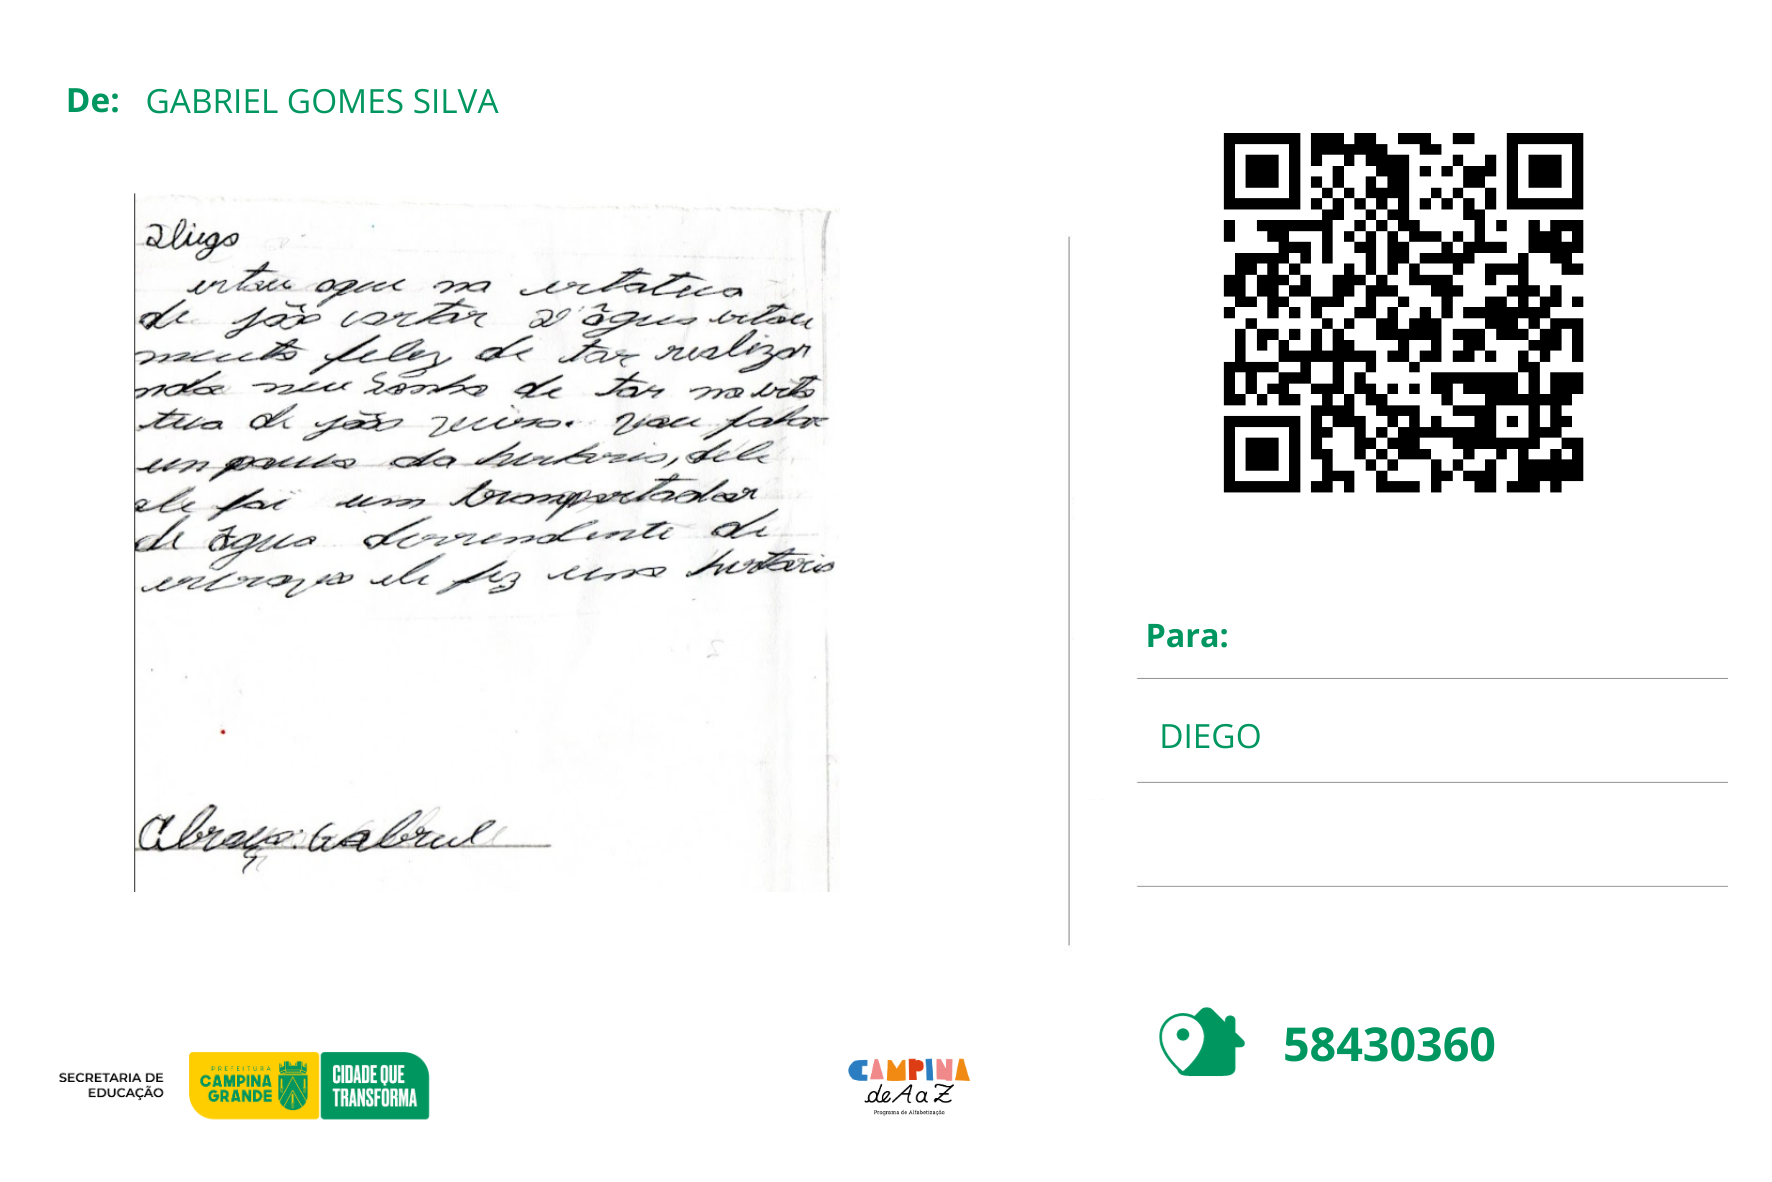 De: GABRIEL GOMES SILVA
Diego
estou aqui na estatua
de joão cortar d'água estou
muito feliz de tar realizan
ndo meu sonho de tar na esta
tua de joão vieira. Vou falar
um pouco da historia, dele
ele foi um transportador
de água desendente de
escravos ele fez uma historia
Abraço: Gabriel
Para:
DIEGO
58430360
SECRETARIA DE
EDUCAÇÃO
PREFEITURA
CAMPINA
GRANDE
CIDADE QUE
TRANSFORMA
CAMPINA
de A a Z
Programa de Alfabetização